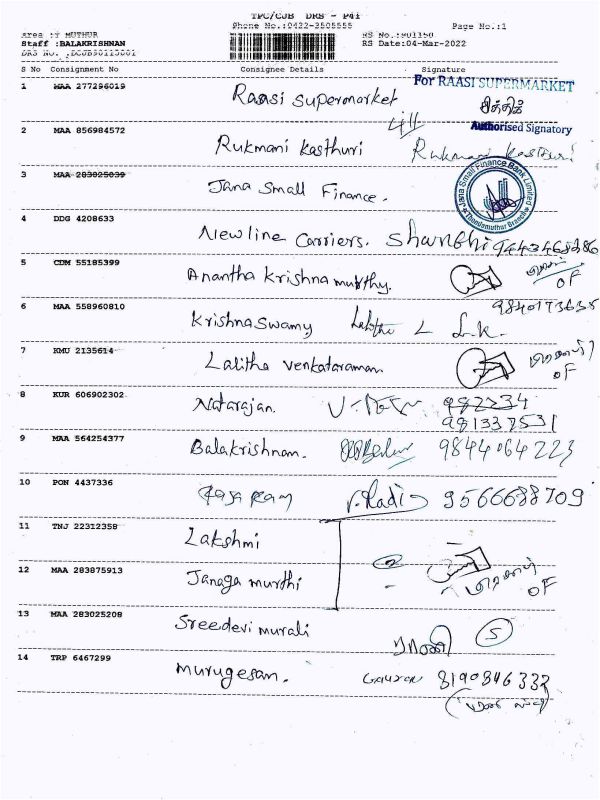 TPC/CJB DRS - P41
Phone No.:0422-2505555 Page No.:1
Area : MUTHUR RS No.:901350
Staff :BALAKRISHNAN RS Date:04-Mar-2022
DRS No.
S No Consignment No Consignee Details Signature
1 MAA 277296019 Raasi Supermarket For RAASI SUPERMARKET
Authorised Signatory
2 MAA 856984572 Rukmani Kasthuri Rukmani Kasthuri
3 MAA 283025039 Jana Small Finance. Jana Small Finance Bank Limited Thondamuthur Branch
4 DDG 4208633 Newline Carriers. Shanthi
5 CDM 55185399 Anantha Krishna murthy. OF
6 MAA 558960810 Krishnaswamy L L.K. 9840173635
7 KMU 2135614 Lalitha Venkataraman OF
8 KUR 606902302 Natarajan. 982234
981337531
9 MAA 564254377 Balakrishnan. 9844064223
10 PON 4437336 9566688709
11 TNJ 22312358 Lakshmi
12 MAA 283875913 Janaga murthi OF
13 MAA 283025208 Sreedevi murali ராணி 5
14 TRP 6467299 Murugesan. 8190846332